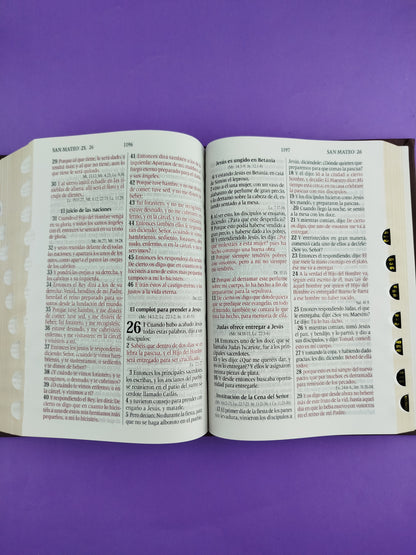 SAN MATEO 25, 26
1196
29 Porque al que tiene, le será dado, y
tendrá más; y al que no tiene, aun lo
que tiene le será quitado.
30 Y al siervo inútil echadle en las
tinieblas de afuera; allí será el lloro y el
crujir de dientes.
El juicio de las naciones
31 Cuando el Hijo del Hombre venga
en su gloria, y todos los santos ángeles
con él, entonces se sentará en su trono
de gloria,
32 y serán reunidas delante de él todas
las naciones; y apartará los unos de
los otros, como aparta el pastor las
ovejas de los cabritos.
33 Y pondrá las ovejas a su derecha, y
los cabritos a su izquierda.
34 Entonces el Rey dirá a los de su
derecha: Venid, benditos de mi Padre,
heredad el reino preparado para vo-
sotros desde la fundación del mundo.
35 Porque tuve hambre, y me disteis
de comer; tuve sed, y me disteis de
beber; fui forastero, y me recogisteis;
36 estuve desnudo, y me cubristeis;
enfermo, y me visitasteis; en la cárcel,
y vinisteis a mí.
37 Entonces los justos le responderán
diciendo: Señor, ¿cuándo te vimos
hambriento, y te sustentamos, o
sediento, y te dimos de beber?
38 ¿Y cuándo te vimos forastero, y te
recogimos, o desnudo, y te cubrimos?
39 ¿O cuándo te vimos enfermo, o en
la cárcel, y vinimos a ti?
40 Y respondiendo el Rey, les dirá: De
cierto os digo que en cuanto lo hicisteis
a uno de estos mis hermanos más
pequeños, a mí lo hicisteis.
41 Entonces dirá también a los de la
izquierda: Apartaos de mí, malditos, al
fuego eterno preparado para el diablo
y sus ángeles.
42 Porque tuve hambre, y no me
disteis de comer; tuve sed, y no me
disteis de beber;
43 fui forastero, y no me recogisteis;
estuve desnudo, y no me cubristeis;
enfermo, y en la cárcel, y no me
visitasteis.
44 Entonces también ellos le respon-
derán diciendo: Señor, ¿cuándo te
vimos hambriento, sediento, forastero,
desnudo, enfermo, o en la cárcel, y no
te servimos?
45 Entonces les responderá diciendo:
De cierto os digo que en cuanto no lo
hicisteis a uno de estos más pequeños,
tampoco a mí lo hicisteis.
46 E irán éstos al castigo eterno, y los
justos a la vida eterna.
El complot para prender a Jesús
26 1 Cuando hubo acabado Jesús
todas estas palabras, dijo a sus
discípulos:
2 Sabéis que dentro de dos días se ce-
lebra la pascua, y el Hijo del Hombre
será entregado para ser crucificado.
3 Entonces los principales sacerdotes,
los escribas, y los ancianos del pueblo
se reunieron en el patio del sumo sa-
cerdote llamado Caifás,
4 y tuvieron consejo para prender con
engaño a Jesús, y matarle.
5 Pero decían: No durante la fiesta, para
que no se haga alboroto en el pueblo.
1197
SAN MATEO 26
Jesús es ungido en Betania
6 Y estando Jesús en Betania, en casa
de Simón el leproso,
7 vino a él una mujer, con un vaso de
alabastro de perfume de gran precio,
y lo derramó sobre la cabeza de él,
estando sentado a la mesa.
8 Al ver esto, los discípulos se enojaron,
diciendo: ¿Para qué este desperdicio?
9 Porque esto podía haberse vendido a
gran precio, y haberse dado a los pobres.
10 Y entendiéndolo Jesús, les dijo: ¿Por
qué molestáis a esta mujer? pues ha
hecho conmigo una buena obra.
11 Porque siempre tendréis pobres
con vosotros, pero a mí no siempre
me tendréis.
12 Porque al derramar este perfume
sobre mi cuerpo, lo ha hecho a fin de
prepararme para la sepultura.
13 De cierto os digo que dondequiera
que se predique este evangelio, en todo
el mundo, también se contará lo que
ésta ha hecho, para memoria de ella.
Judas ofrece entregar a Jesús
14 Entonces uno de los doce, que se
llamaba Judas Iscariote, fue a los prin-
cipales sacerdotes,
15 y les dijo: ¿Qué me queréis dar, y
yo os lo entregaré? Y ellos le asignaron
treinta piezas de plata.
16 Y desde entonces buscaba oportuni-
dad para entregarle.
Institución de la Cena del Señor
17 El primer día de la fiesta de los panes
sin levadura, vinieron los discípulos a
Jesús, diciéndole: ¿Dónde quieres que
preparemos para que comas la pascua?
18 Y él dijo: Id a la ciudad a cierto
hombre, y decidle: El Maestro dice: Mi
tiempo está cerca; en tu casa celebraré
la pascua con mis discípulos.
19 Y los discípulos hicieron como Jesús
les mandó, y prepararon la pascua.
20 Cuando llegó la noche, se sentó a
la mesa con los doce.
21 Y mientras comían, dijo: De cierto
os digo, que uno de vosotros me va a
entregar.
22 Y entristecidos en gran manera,
comenzó cada uno de ellos a decirle:
¿Soy yo, Señor?
23 Entonces él respondiendo, dijo: El
que mete la mano conmigo en el plato,
ése me va a entregar.
24 A la verdad el Hijo del Hombre va,
según está escrito de él, mas ¡ay de
aquel hombre por quien el Hijo del
Hombre es entregado! Bueno le fuera
a ese hombre no haber nacido.
25 Entonces respondiendo Judas, el
que le entregaba, dijo: ¿Soy yo, Maestro?
Le dijo: Tú lo has dicho.
26 Y mientras comían, tomó Jesús
el pan, y bendijo, y lo partió, y dio a
sus discípulos, y dijo: Tomad, comed;
esto es mi cuerpo.
27 Y tomando la copa, y habiendo dado
gracias, les dio, diciendo: Bebed de
ella todos;
28 porque esto es mi sangre del nuevo
pacto, que por muchos es derramada
para remisión de los pecados.
29 Y os digo que desde ahora no beberé
más de este fruto de la vid, hasta aquel
día en que lo beba nuevo con vosotros
en el reino de mi Padre.